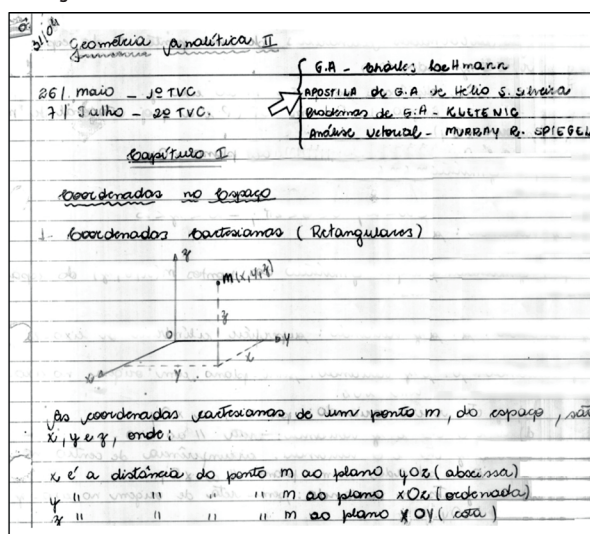 31/04
Geometria Analítica II
G.A - Charles Lehmann
26/ maio - 1º TVC
APOSTILA de G.A de Hélio S. Silveira
7/ Julho - 2º TVC.
Problemas de G.A - KLETENIC
Análise Vetorial - MURRAY R. SPIEGEL
Capítulo I
Coordenadas no Espaço
1- Coordenadas Cartesianas (Retangulares)
z
m(x,y,z)
z
O
y
x
y
x
As coordenadas cartesianas de um ponto m, do espaço, são
x, y e z, onde:
x é a distância do ponto m ao plano yOz (abscissa)
y " " " " m ao plano xOz (ordenada)
z " " " " m ao plano xOy (cota)